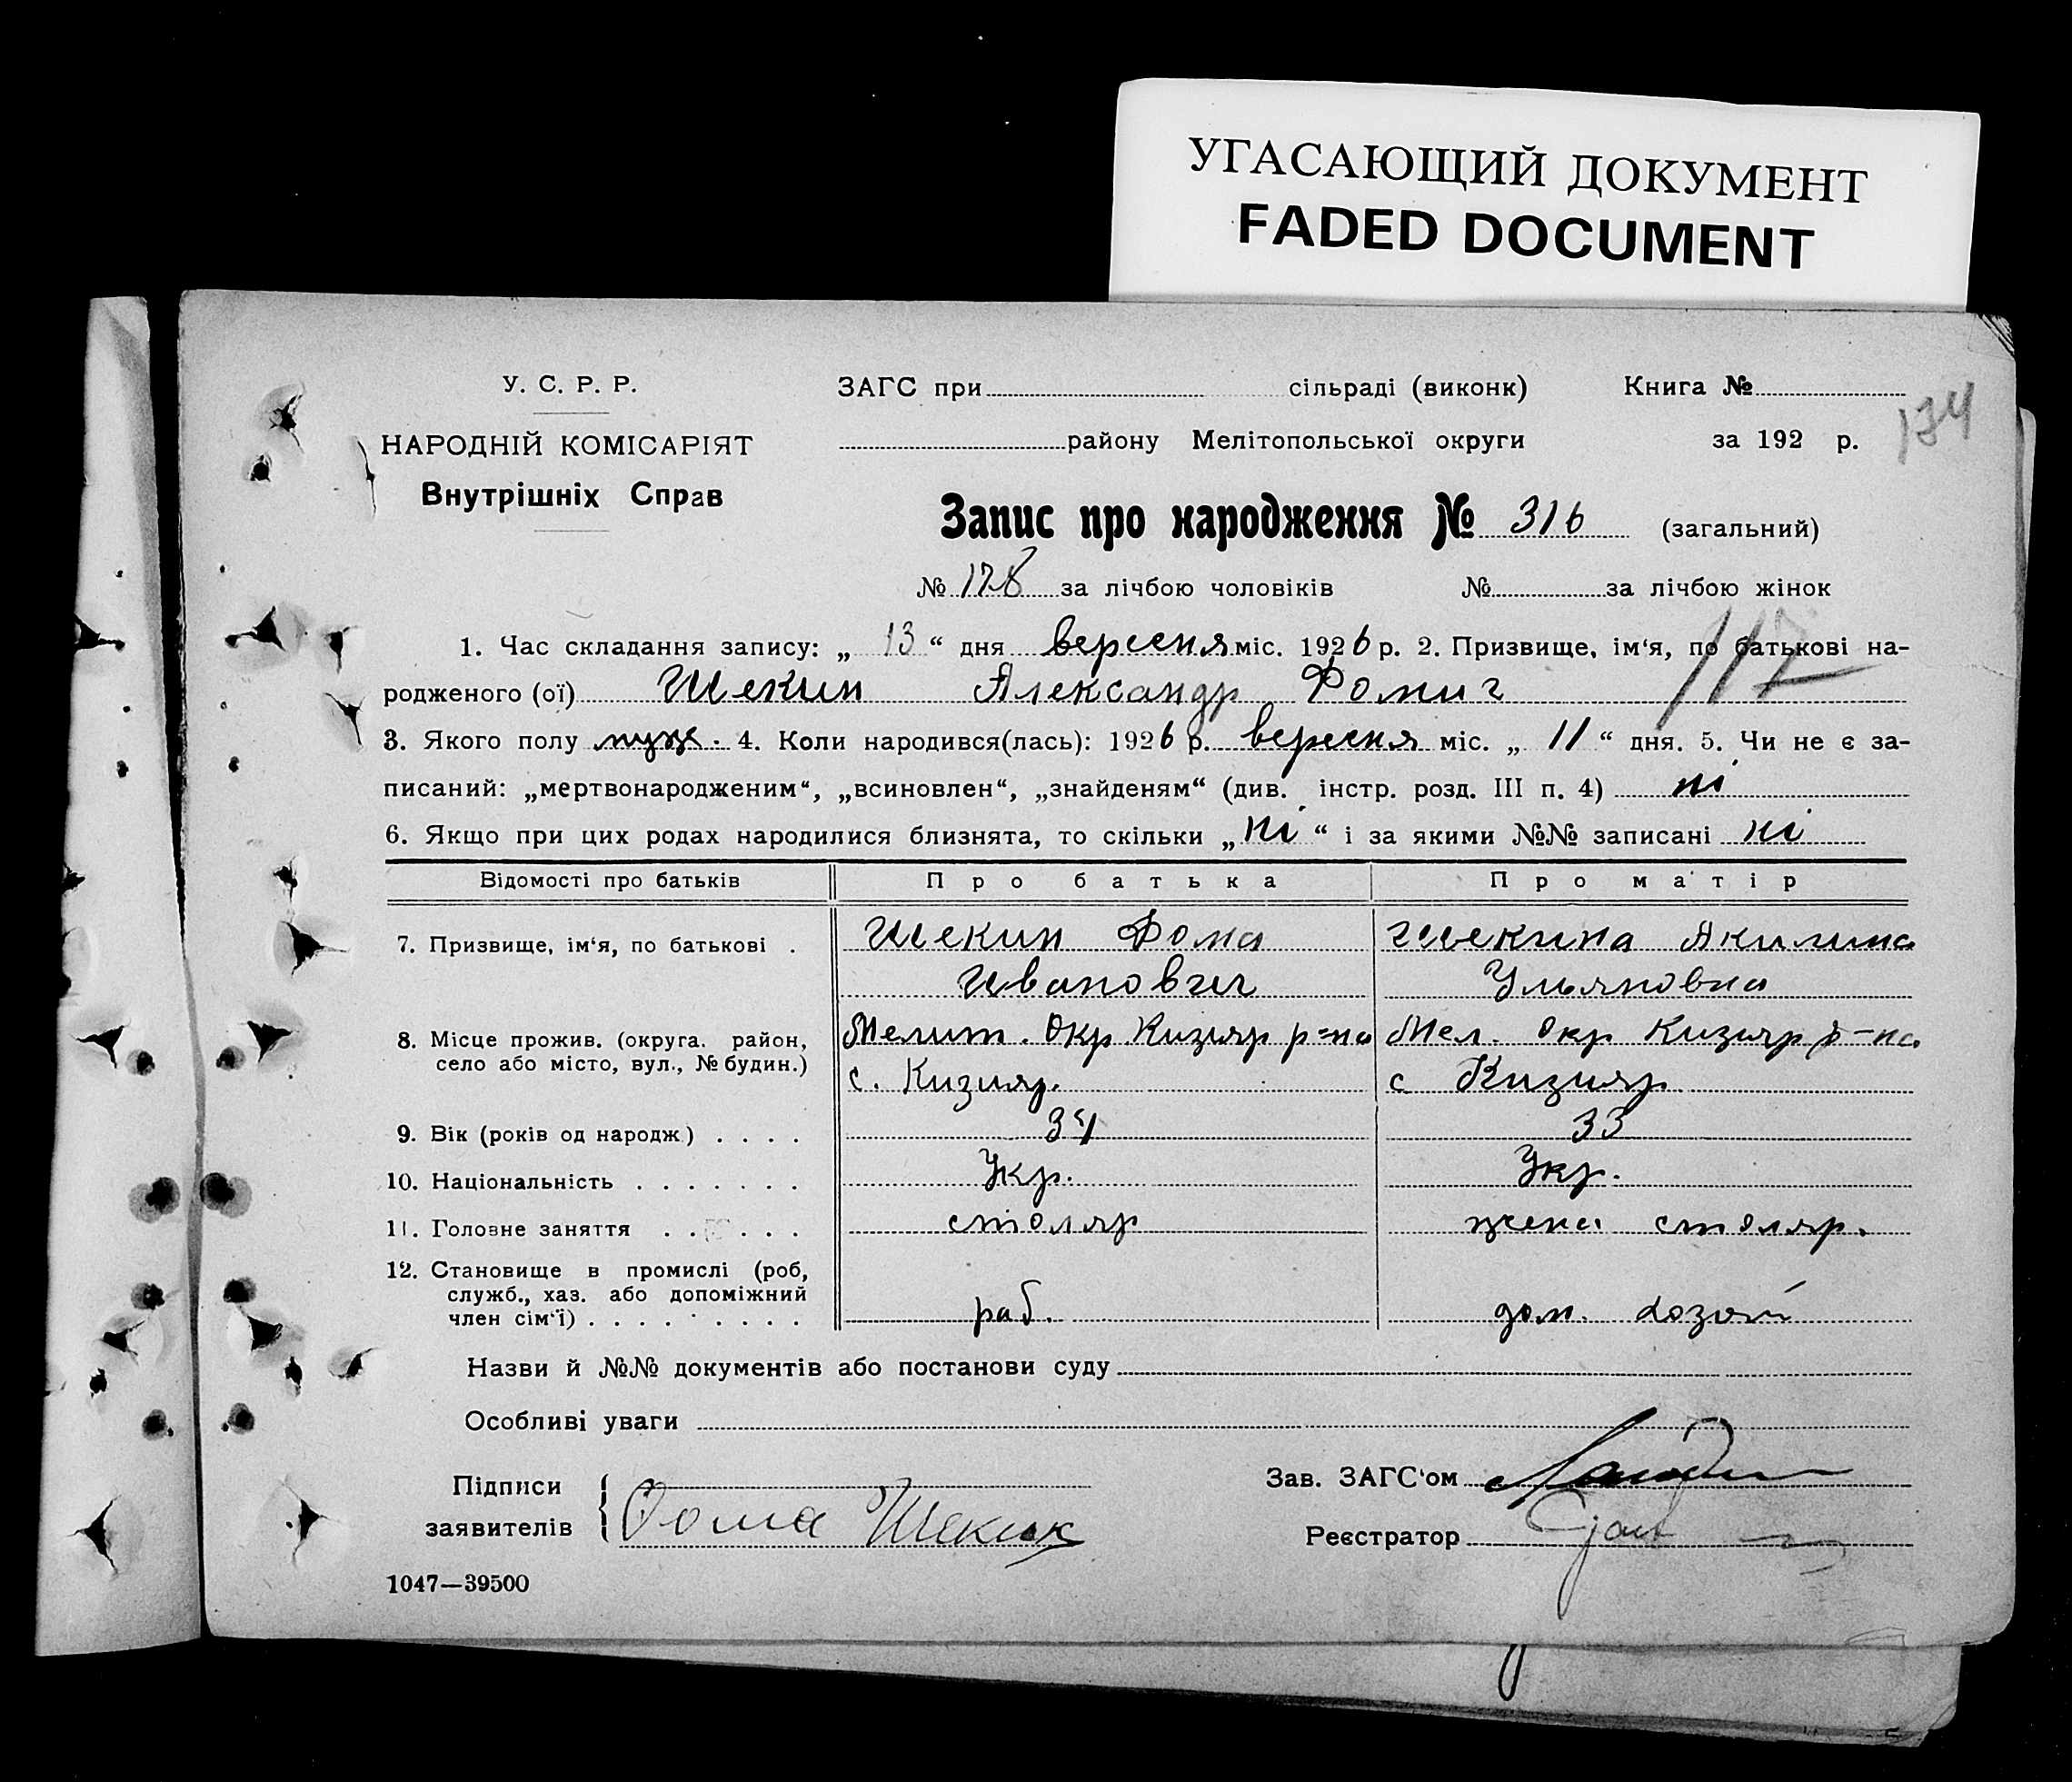 УГАСАЮЩИЙ ДОКУМЕНТ
FADED DOCUMENT
У. С. Р. Р.
НАРОДНІЙ КОМІСАРІЯТ
Внутрішніх Справ
ЗАГС при сільраді (виконк) Книга №
району Мелітопольської округи за 192 р.
134
Запис про народження № 316 (загальний)
№ 178 за лічбою чоловіків № за лічбою жінок
117
1. Час складання запису: „ 13 “ дня вересня міс. 1926 р. 2. Призвище, ім‘я, по батькові на-
родженого (ої) Шекин Александр Фомич
3. Якого полу муж. 4. Коли народився(лась): 1926 р. вересня міс. „ 11 “ дня. 5. Чи не є за-
писаний: „мертвонародженим“, „всиновлен“, „знайденям“ (див. інстр. розд. III п. 4) ні
6. Якщо при цих родах народилися близнята, то скільки „ ні “ і за якими №№ записані ні
Відомості про батьків Про батька Про матір
7. Призвище, ім‘я, по батькові . Шекин Фома Шекина Акилина
Иванович Ульяновна
8. Місце прожив. (округа. район, Мелит. Окр Кизияр р=на Мел. Окр Кизияр р-на
село або місто, вул., № будин.) с. Кизияр. с Кизияр
9. Вік (років од народж.) . . . . 34 33
10. Національність . . . . . . . Укр. Укр.
11. Головне заняття . . . . . столяр жена столяр.
12. Становище в промислі (роб,
служб., хаз. або допоміжний
член сім‘ї) . . . . . . . . . раб. дом. хозяй
Назви й №№ документів або постанови суду
Особливі уваги
Підписи
заявителів Фома Шекин
Зав. ЗАГС‘ом
Реєстратор
1047—39500